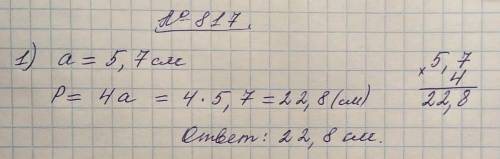 № 817.
1) a = 5,7 см
P = 4a = 4 · 5,7 = 22,8 (см)
Ответ: 22,8 см.
5,7
× 4
22,8